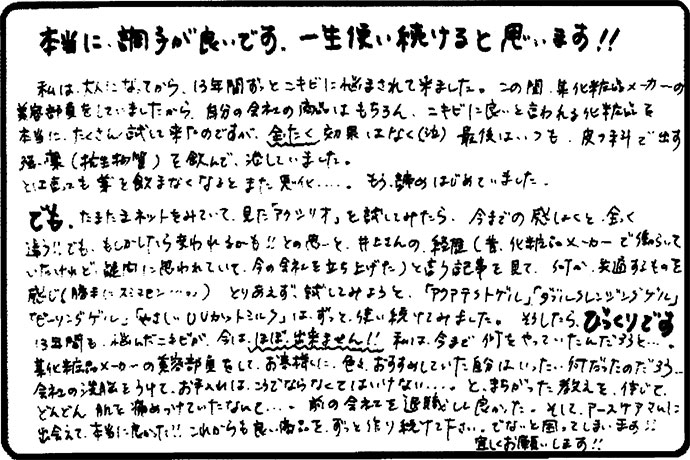 本当に、調子が良いです、一生使い続けると思います!!
私は、大人になってから、13年間ずっとニキビに悩まされて来ました。この間、某化粧品メーカーの
美容部員をしていましたから、自分の会社の商品はもちろん、ニキビに良いと言われる化粧品を
本当に、たくさん試して来たのですが、全たく効果はなく(泣)最後はいつも、皮フ科で出す
強い薬(抗生物質)を飲んで、治していました。
とは言っても薬を飲まなくなるとまた悪化‥‥。もう、諦めはじめていました。
でも、たまたまネットをみていて、見た「アクシリオ」を試してみたら、今までの感じと、全く
違う!!でも、もしかしたら変われるかも!!との思いと、井上さんの、経歴(昔、化粧品メーカーで働らいて
いたけれど、疑問に思われていて、今の会社を立ち上げた)と言う記事を見て、何か、共通するものを
感じ(勝手にスミマセン‥‥)とりあえず、試してみようと、「アクアテクトゲル」「ダブルクレンジングゲル」
「ピーリングゲル」「やさしいUVカットミルク」は、ずっと、使い続けてみました。そうしたら、びっくりです
13年間も、悩んだニキビが、今は、ほぼ、出来ません!!私は、今まで何をやっていたんだろうと‥。
某化粧品メーカーの美容部員をして、お客様に、色々、おすすめしていた自分はいったい何だったのだろう‥
会社の洗脳をうけて、お手入れは、こうでならなくてはいけない‥‥。と、まちがった教えを、信じて、
どんどん肌を痛めつけていたなんて‥‥。前の会社を退職して良かった。そして、アースケアさんに
出会えて、本当に良かった!!これからも良い商品を、ずっと作り続けて下さい。でないと困ってしまいます!!
宜しくお願いします!!